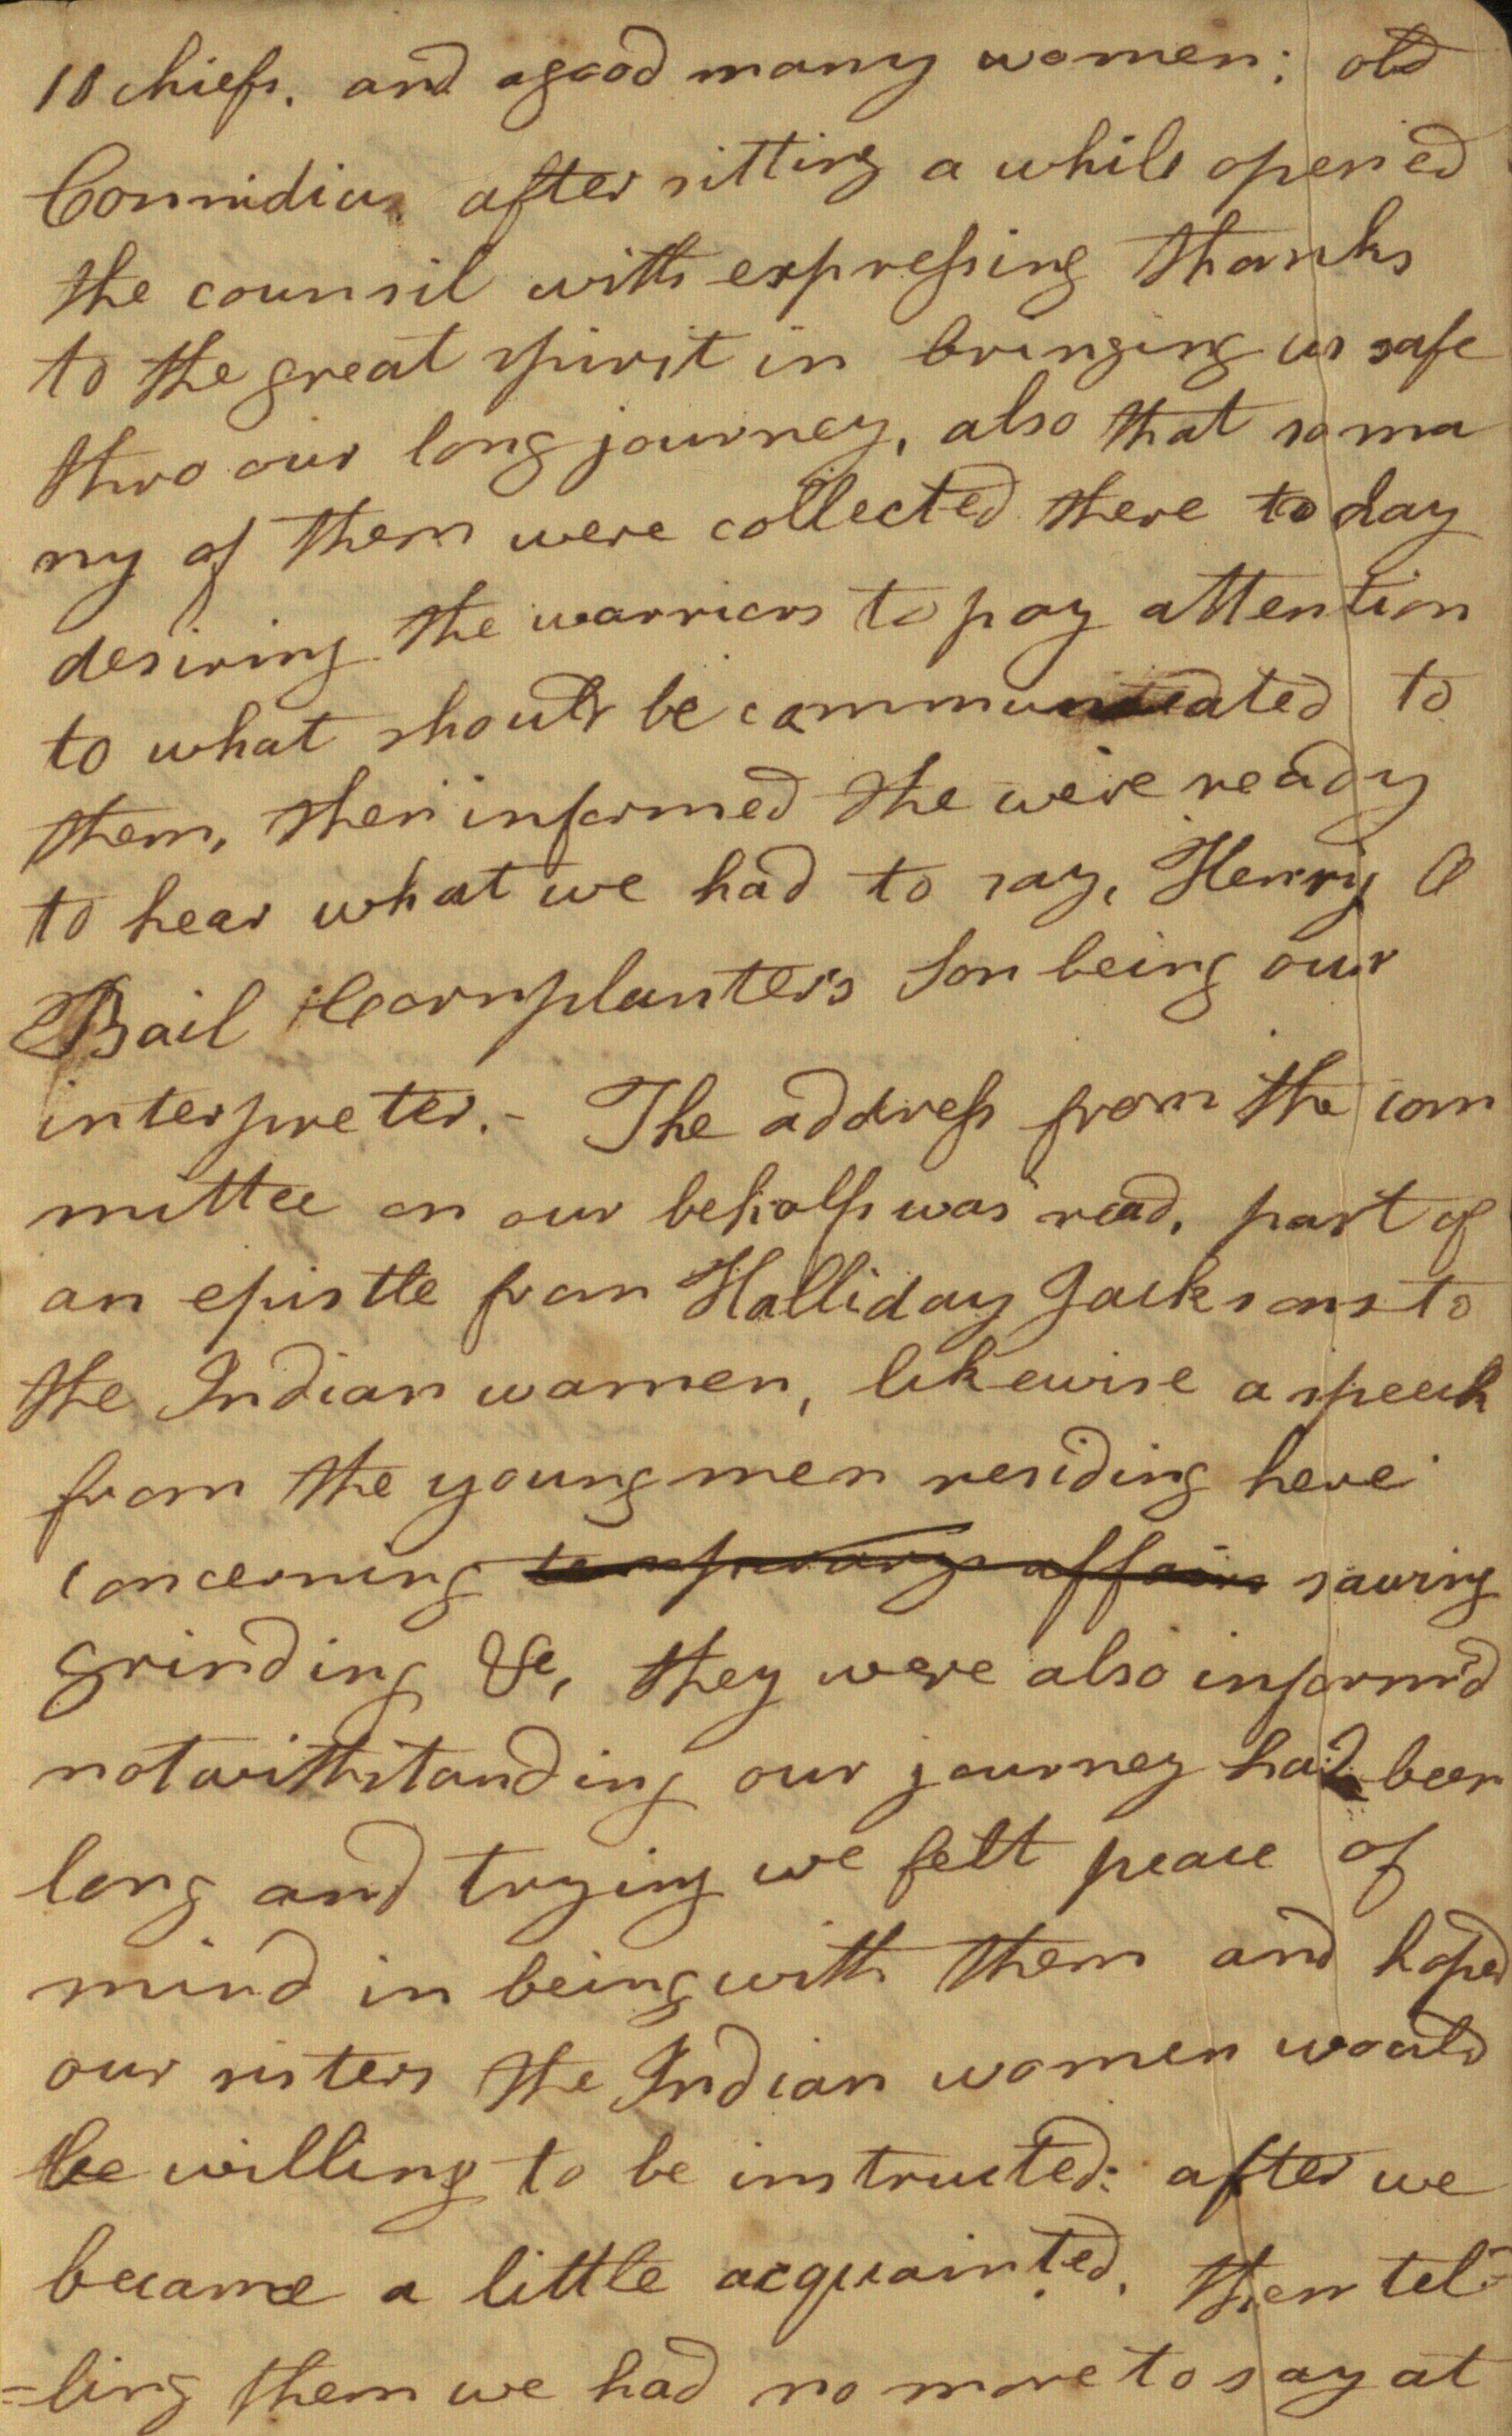 10 chiefs. and a good many women; old
Connidiu after sitting a while opened
the counsil with expressing thanks
to the great spirit in bringing us safe
thro our long journey, also that so ma
ny of them were collected there to day
desiring the warriors to pay attention
to what should be communicated to
them, then informed the were ready
to hear what we had to say, Henry O
Bail Cornplanters Son being our
interpreter. - The address from the com
mittee on our behalf was read, part of
an epistle from Halliday Jacksons to
the Indian women, likewise a speech
from the young men residing here
concerning temporary affairs sawing
grinding &c, they were also inform'd
notwithstanding our journey had been
long and trying we felt peace of
mind in being with them and hoped
our sisters the Indian women would
be willing to be instructed: after we
became a little acquainted, then tel=
=ling them we had no more to say at